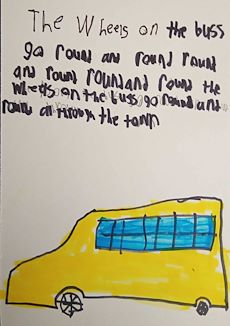 The Wheels on the buss
go round and round round
and round round and round the
wheels on the buss go round and
round all through the town